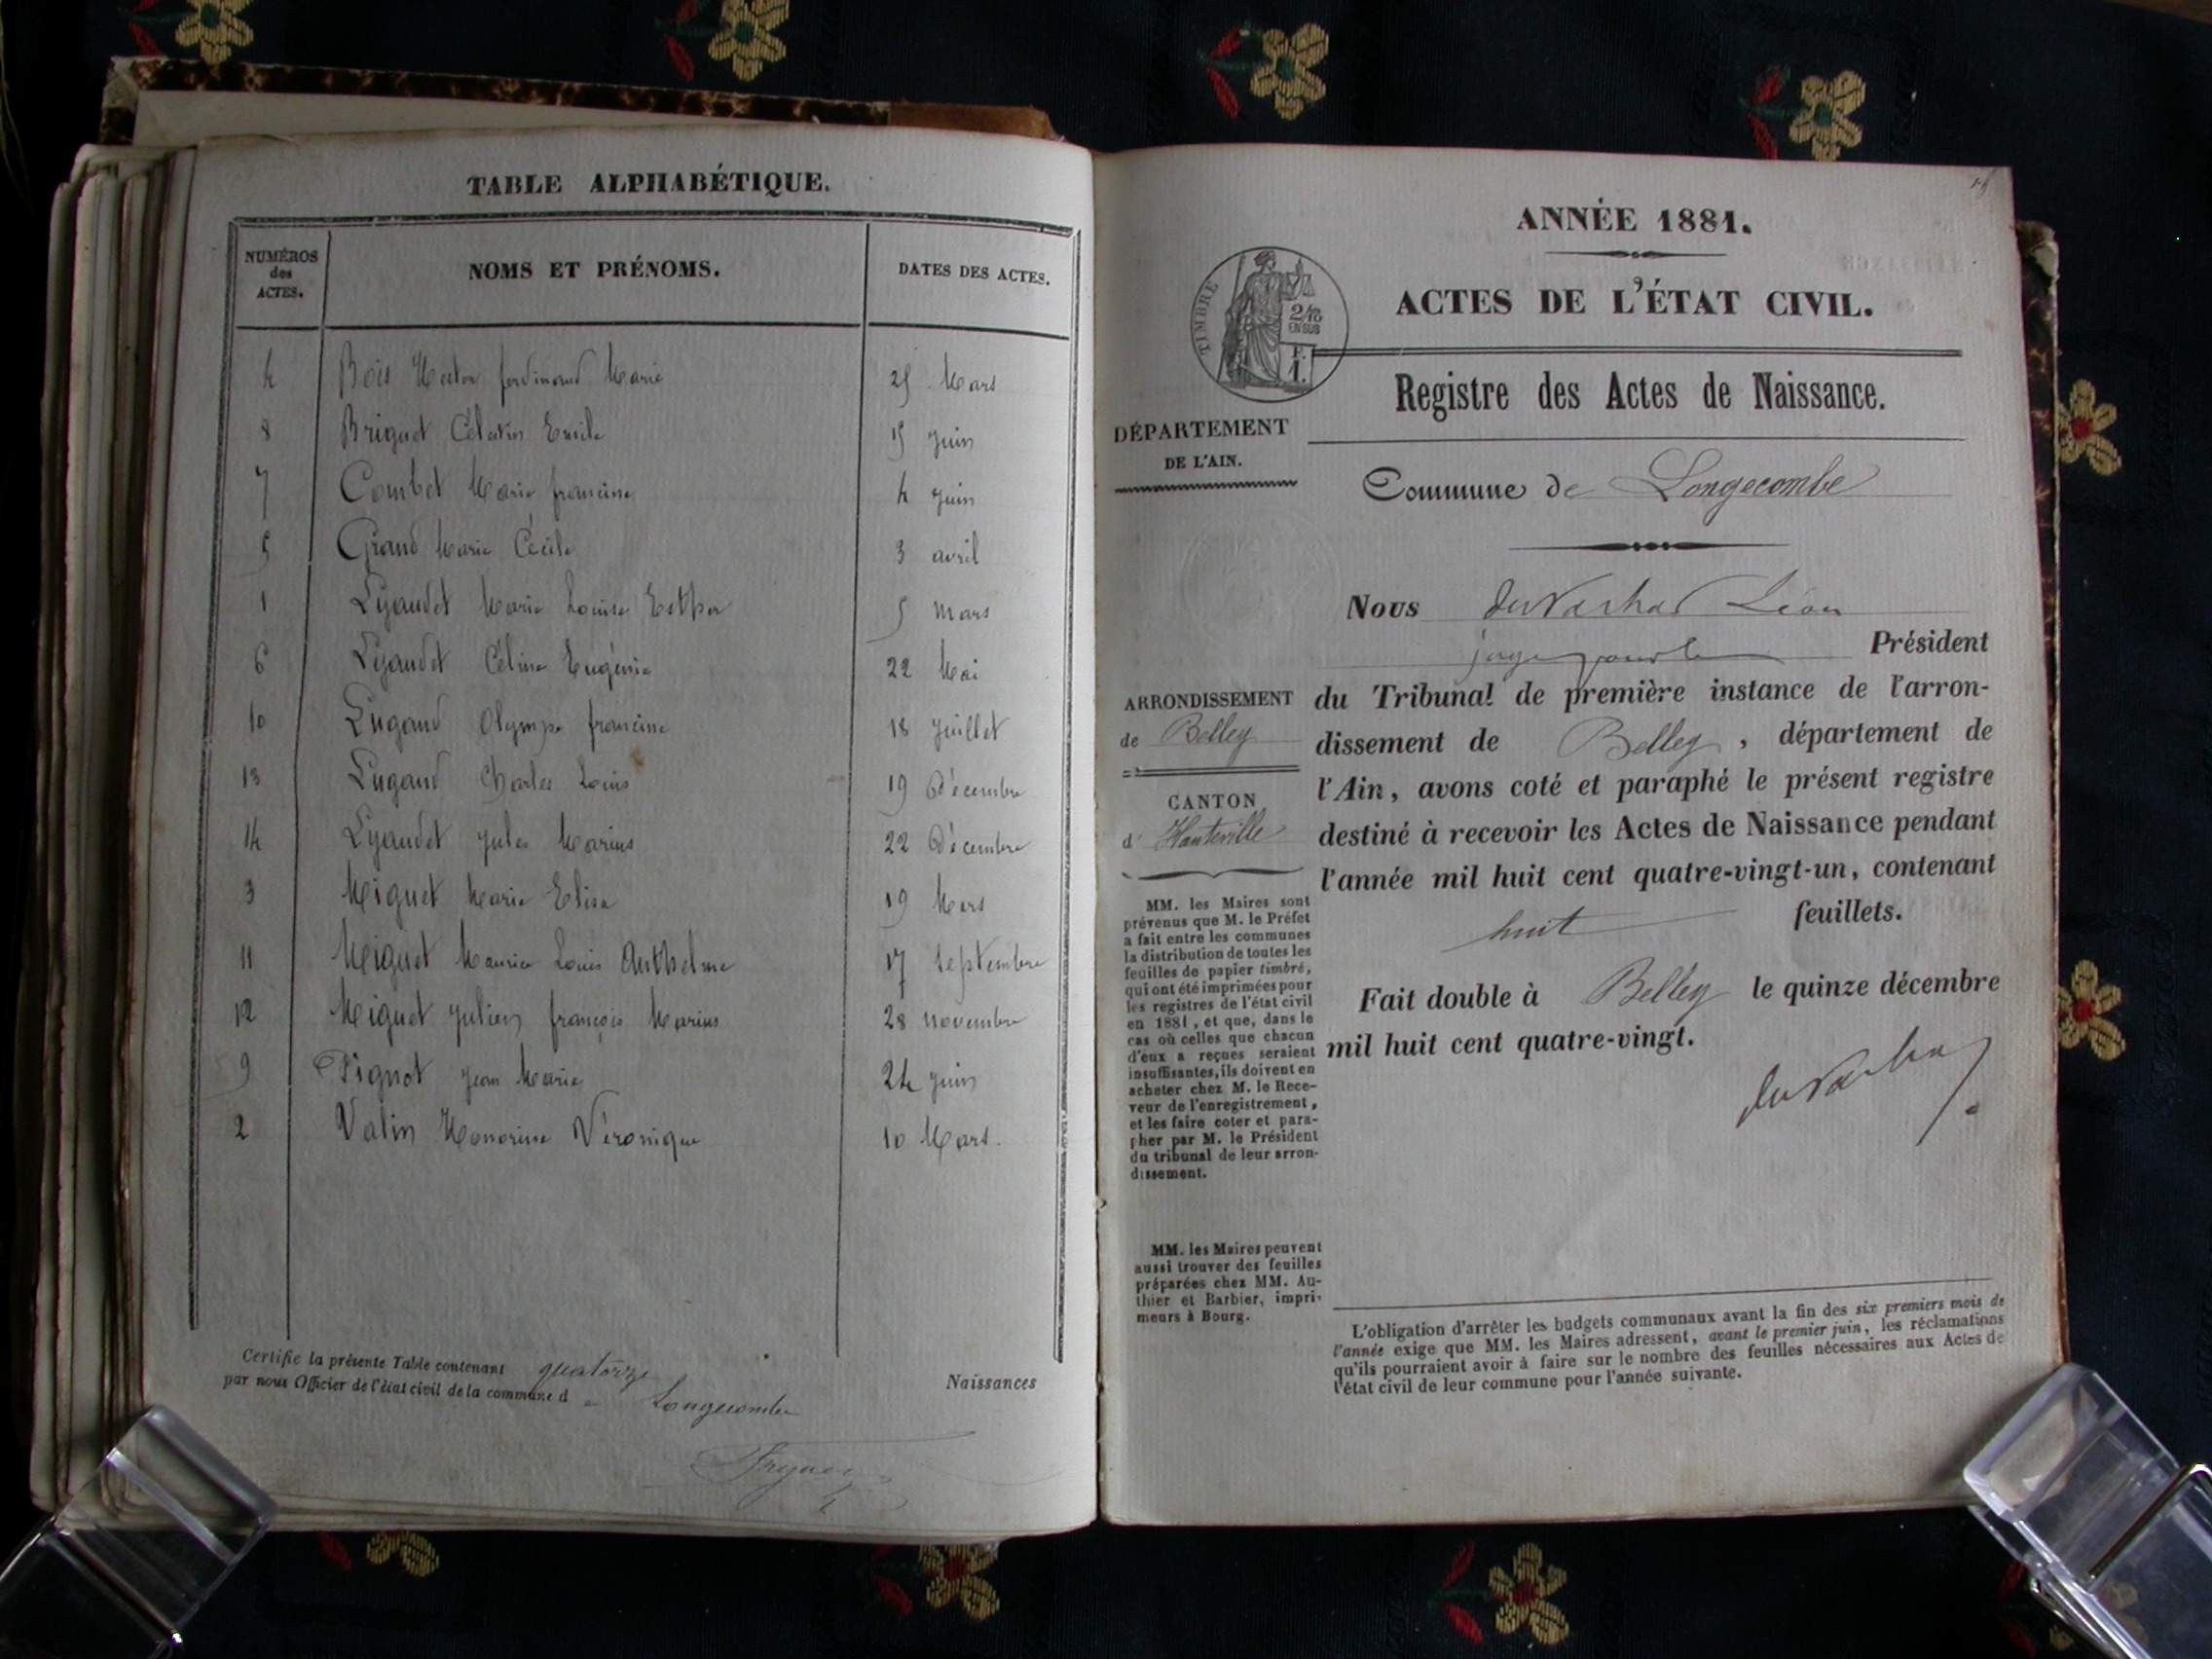 TABLE ALPHABÉTIQUE.
NUMÉROS des ACTES. NOMS ET PRÉNOMS. DATES DES ACTES.
4 Bois Hector ferdinand Marie 25 Mars
8 Briguet Célestin Emile 15 juin
7 Combet Marie francine 4 juin
5 Grand Marie Cécile 3 avril
1 Lyaudet Marie Louise Esther 5 mars
6 Lyaudet Céline Eugénie 22 Mai
10 Lugand Olympe francine 18 juillet
13 Lugand Charles Louis 19 Décembre
14 Lyaudet jules Marius 22 Décembre
3 Miguet Marie Elisa 19 Mars
11 Miguet Maurice Louis Anthelme 17 Septembre
12 Miguet julien françois Marius 28 novembre
9 Pignot jean Marie 24 juin
2 Valin Honorine Véronique 10 Mars.
Certifié la présente Table contenant quatorze Naissances
par nous Officier de l'état civil de la commune d e Longecombe
ANNÉE 1881.
ACTES DE L'ÉTAT CIVIL.
TIMBRE
2/10
EN SUS
F.
1.
Registre des Actes de Naissance.
DÉPARTEMENT
DE L'AIN.
Commune de Longecombe
Nous Léon
Président
ARRONDISSEMENT
de Belley
CANTON
d' Hauteville
du Tribunal de première instance de l'arron-
dissement de Belley, département de
l'Ain, avons coté et paraphé le présent registre
destiné à recevoir les Actes de Naissance pendant
l'année mil huit cent quatre-vingt-un, contenant
huit feuillets.
Fait double à Belley le quinze décembre
mil huit cent quatre-vingt.
MM. les Maires sont
prévenus que M. le Préfet
a fait entre les communes
la distribution de toutes les
feuilles de papier timbré,
qui ont été imprimées pour
les registres de l'état civil
en 1881, et que, dans le
cas où celles que chacun
d'eux a reçues seraient
insuffisantes, ils doivent en
acheter chez M. le Rece-
veur de l'enregistrement,
et les faire coter et para-
pher par M. le Président
du tribunal de leur arron-
dissement.
MM. les Maires peuvent
aussi trouver des feuilles
préparées chez MM. Au-
thier et Barbier, impri-
meurs à Bourg.
L'obligation d'arrêter les budgets communaux avant la fin des six premiers mois de
l'année exige que MM. les Maires adressent, avant le premier juin, les réclamations
qu'ils pourraient avoir à faire sur le nombre des feuilles nécessaires aux Actes de
l'état civil de leur commune pour l'année suivante.